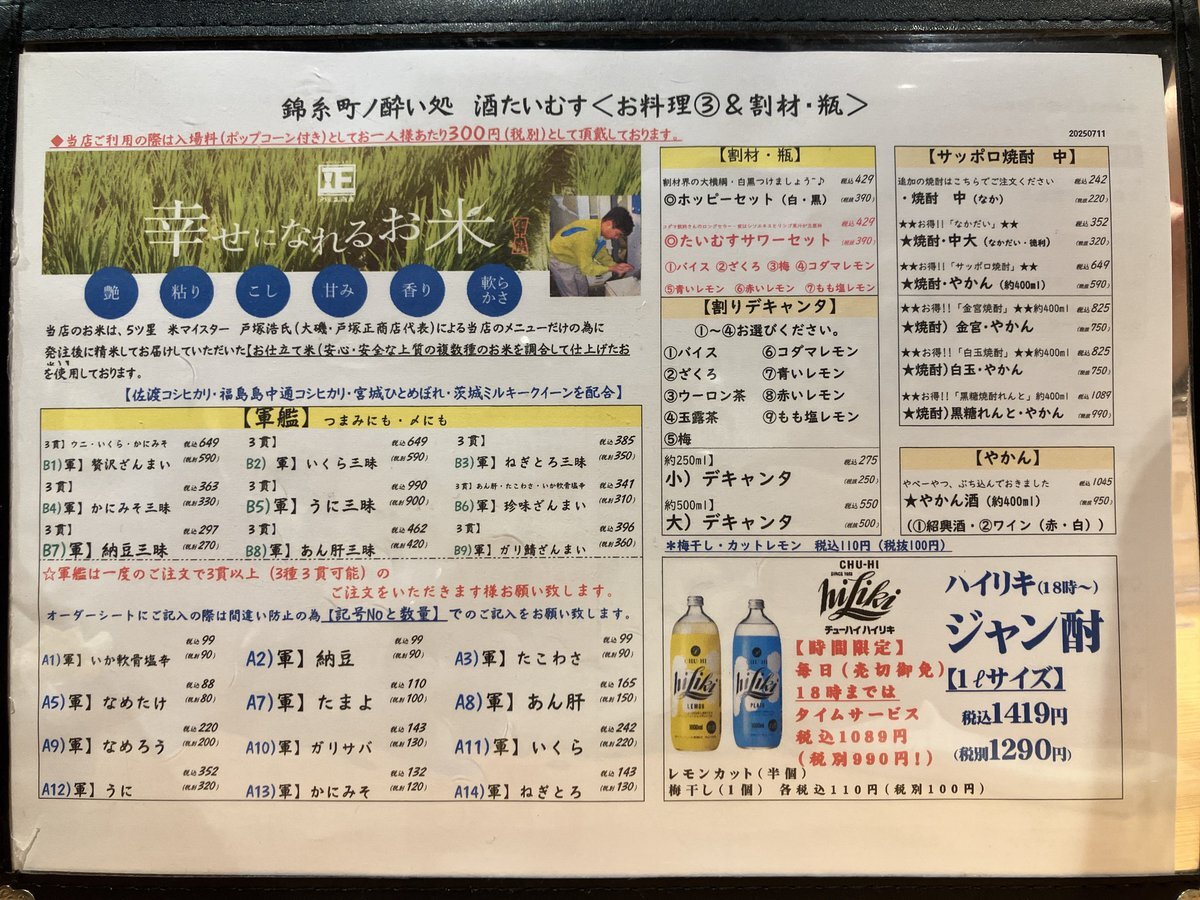 錦糸町ノ酔い処 酒たいむす＜お料理③＆割材・瓶＞
◆当店ご利用の際は入場料(ポップコーン付き)としてお一人様あたり300円(税別)として頂戴しております。
20250711
正
幸せになれるお米
艶 粘り こし 甘み 香り 軟らかさ
当店のお米は、5ツ星 米マイスター 戸塚浩氏(大磯・戸塚正商店代表)による当店のメニューだけの為に
発注後に精米してお届けしていただいた【お仕立て米(安心・安全な上質の複数種のお米を調合して仕上げたお
を使用しております。
【佐渡コシヒカリ・福島島中通コシヒカリ・宮城ひとめぼれ・茨城ミルキークイーンを配合】
【軍艦】 つまみにも・〆にも
3貫】ウニ・いくら・かにみそ 税込649
B1)軍】贅沢ざんまい (税別590)
3貫】 税込649
B2)軍】いくら三昧 (税別590)
3貫】 税込385
B3)軍】ねぎとろ三昧 (税別350)
3貫】 税込363
B4)軍】かにみそ三昧 (税別330)
3貫】 税込990
B5)軍】うに三昧 (税別900)
3貫】あん肝・たこわさ・いか軟骨塩辛 税込341
B6)軍】珍味ざんまい (税別310)
3貫】 税込297
B7)軍】納豆三昧 (税別270)
3貫】 税込462
B8)軍】あん肝三昧 (税別420)
3貫】 税込396
B9)軍】ガリ鯖ざんまい (税別360)
☆軍艦は一度のご注文で3貫以上(3種3貫可能)の
ご注文をいただきます様お願い致します。
オーダーシートにご記入の際は間違い防止の為【記号Noと数量】でのご記入をお願い致します。
税込99
A1)軍】いか軟骨塩辛 (税別90)
税込99
A2)軍】納豆 (税別90)
税込99
A3)軍】たこわさ (税別90)
税込88
A5)軍】なめたけ (税別80)
税込110
A7)軍】たまよ (税別100)
税込165
A8)軍】あん肝 (税別150)
税込220
A9)軍】なめろう (税別200)
税込143
A10)軍】ガリサバ (税別130)
税込242
A11)軍】いくら (税別220)
税込352
A12)軍】うに (税別320)
税込132
A13)軍】かにみそ (税別120)
税込143
A14)軍】ねぎとろ (税別130)
【割材・瓶】
割材界の大横綱・白黒つけましょう~♪ 税込429
◎ホッピーセット(白・黒) (税抜390)
税込429
◎たいむすサワーセット (税抜390)
①バイス ②ざくろ ③梅 ④コダマレモン
⑤青いレモン ⑥赤いレモン ⑦もも塩レモン
【割りデキャンタ】
①～④お選びください。
①バイス ⑥コダマレモン
②ざくろ ⑦青いレモン
③ウーロン茶 ⑧赤いレモン
④玉露茶 ⑨もも塩レモン
⑤梅
約250ml】 税込275
小）デキャンタ (税抜250)
約500ml】 税込550
大）デキャンタ (税抜500)
＊梅干し・カットレモン 税込110円(税抜100円)
【サッポロ焼酎 中】
追加の焼酎はこちらでご注文ください 税込242
・焼酎 中(なか) (税抜220)
★★お得!!「なかだい」★★ 税込352
★焼酎・中大(なかだい・徳利) (税抜320)
★★お得!!「サッポロ焼酎」★★ 税込649
★焼酎・やかん(約400ml) (税抜590)
★★お得!!「金宮焼酎」★★約400ml 税込825
★焼酎）金宮・やかん (税抜750)
★★お得!!「白玉焼酎」★★約400ml 税込825
★焼酎）白玉・やかん (税抜750)
★★お得!!「黒糖焼酎れんと」約400ml 税込1089
★焼酎）黒糖れんと・やかん (税抜990)
【やかん】
やべーやつ、ぶち込んでおきました 税込1045
★やかん酒(約400ml) (税抜950)
(①紹興酒・②ワイン(赤・白))
CHU-HI
SINCE 1983
hiLiki
チューハイ ハイリキ
CHU-HI
hiLiki
LEMON
1000ml
CHU-HI
hiLiki
PLAIN
1000ml
ハイリキ(18時～)
ジャン酎
【1ℓサイズ】
税込1419円
(税別1290円)
【時間限定】
毎日(売切御免)
18時までは
タイムサービス
税込1089円
(税別990円!)
レモンカット(半個)
梅干し(1個) 各税込110円(税別100円)